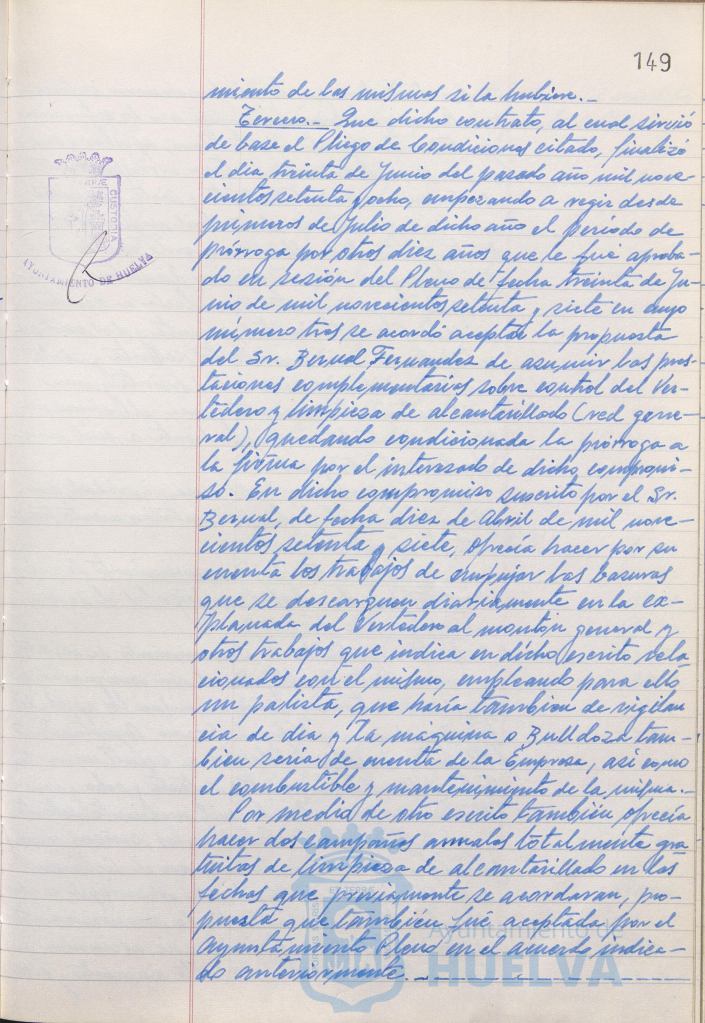 149
miento de las mismas si la hubiere.-
Tercero.- Que dicho contrato, al cual sirvió
de base el Pliego de Condiciones citado, finalizó
el dia treinta de Junio del pasado año mil nove-
cientos setenta y ocho, empezando a regir desde
primeros de Julio de dicho año el período de
prórroga por otros diez años que le fué aproba-
do en sesión del Pleno de fecha treinta de Ju-
nio de mil novecientos setenta y siete en cuyo
número tres se acordó aceptar la propuesta
del Sr. Bernal Fernandez de asumir las pres-
taciones complementarias sobre control del Ver-
tedero y limpieza de alcantarillado (red gene-
ral), quedando condicionada la prórroga a
la firma por el interesado de dicho compromi-
so. En dicho compromiso suscrito por el Sr.
Bernal, de fecha diez de Abril de mil nove-
cientos setenta y siete, ofrecía hacer por su
cuenta los trabajos de empujar las basuras
que se descarguen diariamente en la ex-
planada del Vertedero al montón general y
otros trabajos que indica en dicho escrito rela
cionados con el mismo, empleando para ello
un palista, que haría tambien de vigilan
cia de dia y la maquina o Bulldoza tam-
bien sería de cuenta de la Empresa, así como
el combustible y mantenimiento de la misma.-
Por medio de otro escrito también ofrecía
hacer dos campañas anuales totalmente gra-
tuitas de limpieza de alcantarillado en las
fechas que previamente se acordaran, pro-
puesta que también fué aceptada por el
Ayuntamiento Pleno en el acuerdo indica-
do anteriormente.
CUSTODIA
AYUNTAMIENTO DE HUELVA
Ayuntamiento de
HUELVA